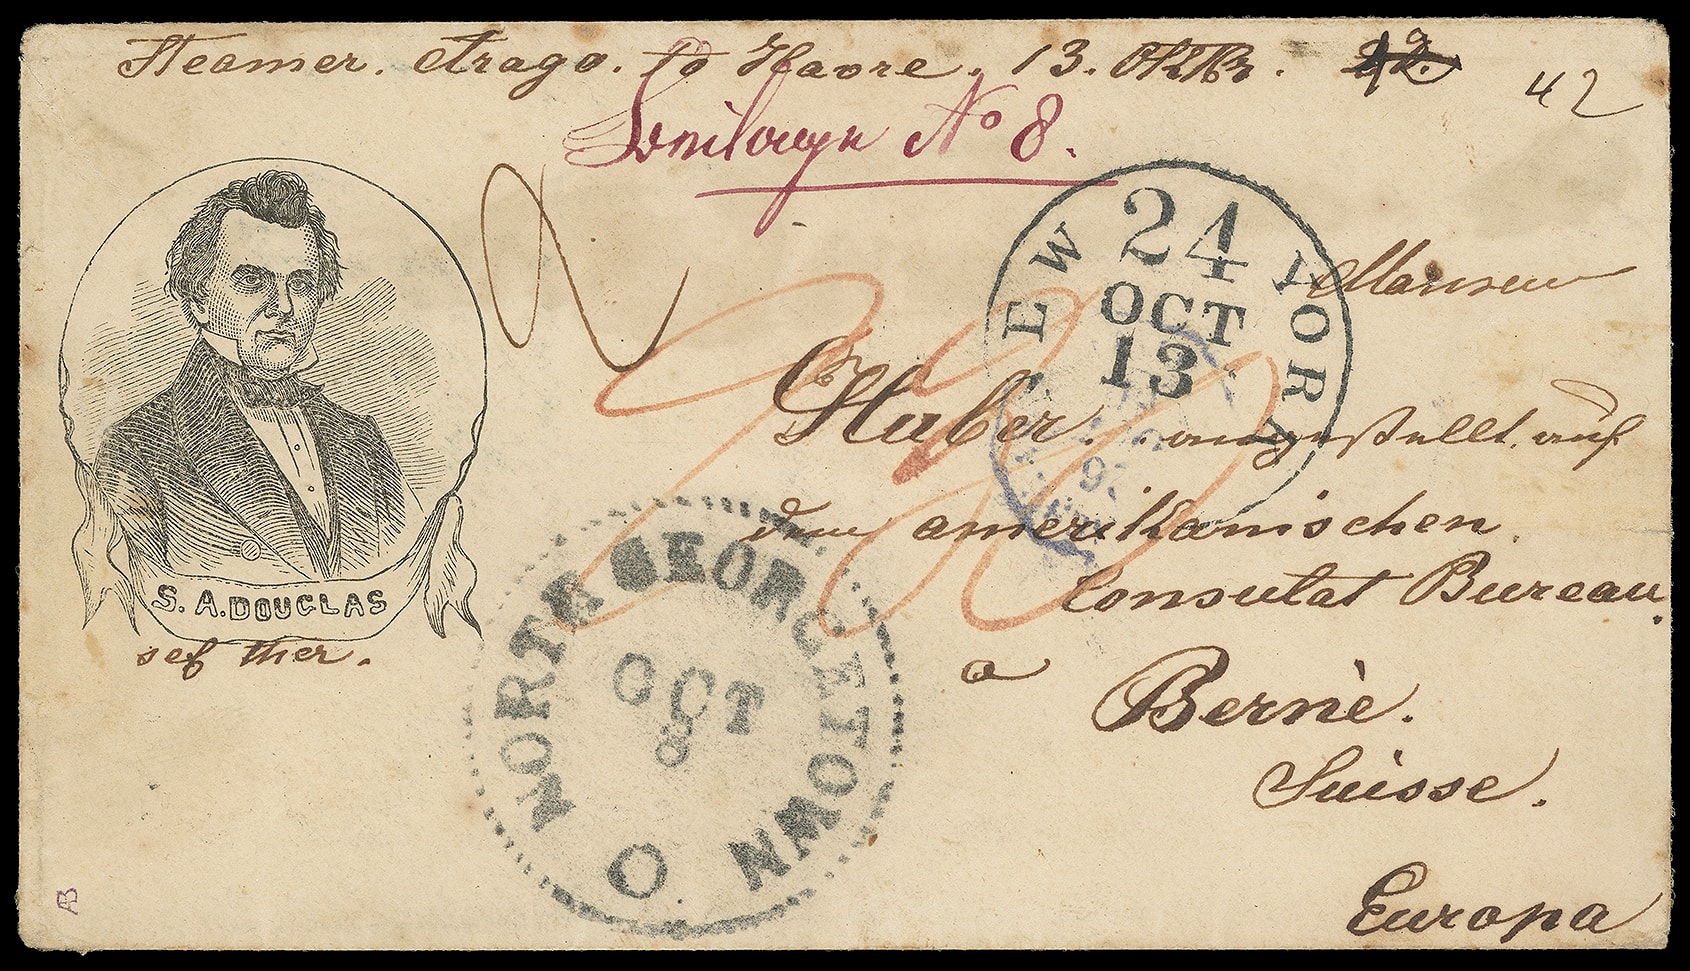 Steamer. Arago. to Havre. 13. Oktbr.
42
No 8.
2
NEW YORK
24
OCT
13
Monsieur
Huber. angestellt auf
dem amerikanischen
Consulat Bureau.
a
Berne.
Suisse.
Europa
S. A. DOUGLAS
NORTH GEORGETOWN O
OCT
8
AB